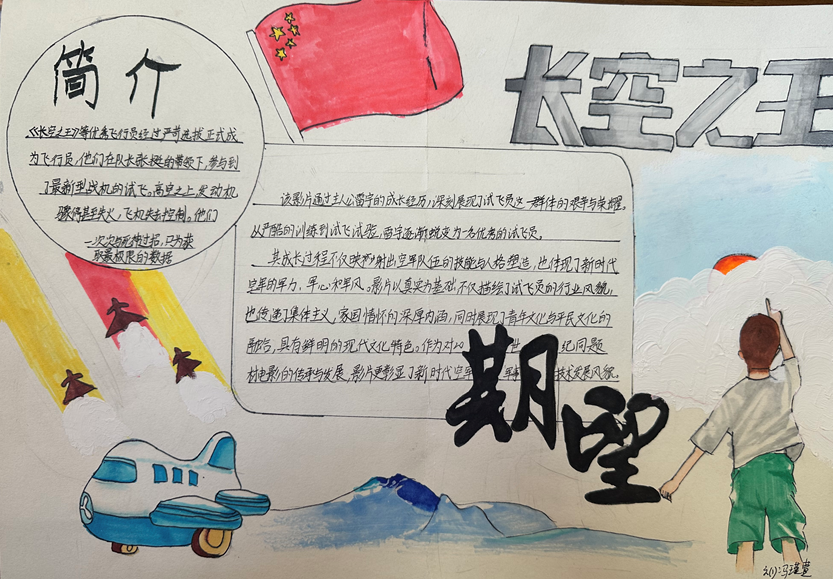 长空之王
简介
《长空之王》等优秀飞行员经过严苛选拔正式成
为飞行员,他们在队长张挺的带领下,参与到
了最新型战机的试飞,高空之上,发动机
骤停甚至失火,飞机失去控制。他们
一次次与死神过招,只为获
取最极限的数据
该影片通过主人公雷宇的成长经历,深刻展现了试飞员这一群体的艰辛与荣耀。
从严酷的训练到试飞试验,雷宇逐渐蜕变为一名优秀的试飞员。
其成长过程不仅映射出空军队伍的技能与人格塑造,也体现了新时代
空军的军力、军心和军风。影片以真实为基础,不仅描绘了试飞员的行业风貌,
也传递了集体主义,家国情怀的深厚内涵,同时展现了青年文化与平民文化的
融合,具有鲜明的现代文化特色。作为对 世 纪同题
材电影的传承与发展,影片更彰显了新时代空军 军 技术发展风貌。
期望